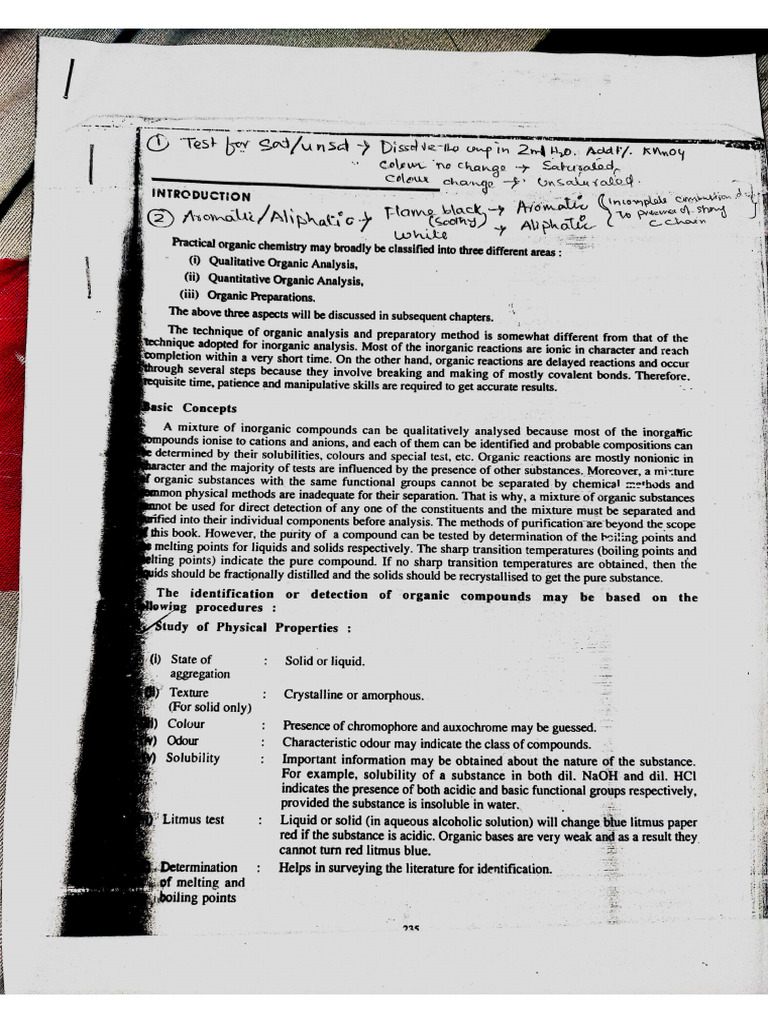 ① Test for Sat/unsat → Dissolve the comp in 2ml H₂O. Add 1%. KMnO4
Colour no change → Saturated,
Colour change → Unsaturated.
INTRODUCTION
② Aromatic/Aliphatic → Flame black → Aromatic (Incomplete combustion
(Soothy) to presence of strong
White → Aliphatic C chain
Practical organic chemistry may broadly be classified into three different areas :
(i) Qualitative Organic Analysis,
(ii) Quantitative Organic Analysis,
(iii) Organic Preparations.
The above three aspects will be discussed in subsequent chapters.
The technique of organic analysis and preparatory method is somewhat different from that of the
technique adopted for inorganic analysis. Most of the inorganic reactions are ionic in character and reach
completion within a very short time. On the other hand, organic reactions are delayed reactions and occur
through several steps because they involve breaking and making of mostly covalent bonds. Therefore.
requisite time, patience and manipulative skills are required to get accurate results.
Basic Concepts
A mixture of inorganic compounds can be qualitatively analysed because most of the inorganic
compounds ionise to cations and anions, and each of them can be identified and probable compositions can
be determined by their solubilities, colours and special test, etc. Organic reactions are mostly nonionic in
character and the majority of tests are influenced by the presence of other substances. Moreover, a mixture
of organic substances with the same functional groups cannot be separated by chemical methods and
common physical methods are inadequate for their separation. That is why, a mixture of organic substances
cannot be used for direct detection of any one of the constituents and the mixture must be separated and
purified into their individual components before analysis. The methods of purification are beyond the scope
of this book. However, the purity of a compound can be tested by determination of the boiling points and
melting points for liquids and solids respectively. The sharp transition temperatures (boiling points and
melting points) indicate the pure compound. If no sharp transition temperatures are obtained, then the
liquids should be fractionally distilled and the solids should be recrystallised to get the pure substance.
The identification or detection of organic compounds may be based on the
following procedures :
Study of Physical Properties :
(i) State of : Solid or liquid.
aggregation
(ii) Texture : Crystalline or amorphous.
(For solid only)
Colour : Presence of chromophore and auxochrome may be guessed.
Odour : Characteristic odour may indicate the class of compounds.
Solubility : Important information may be obtained about the nature of the substance.
For example, solubility of a substance in both dil. NaOH and dil. HCl
indicates the presence of both acidic and basic functional groups respectively,
provided the substance is insoluble in water.
Litmus test : Liquid or solid (in aqueous alcoholic solution) will change blue litmus paper
red if the substance is acidic. Organic bases are very weak and as a result they
cannot turn red litmus blue.
Determination : Helps in surveying the literature for identification.
of melting and
boiling points
235